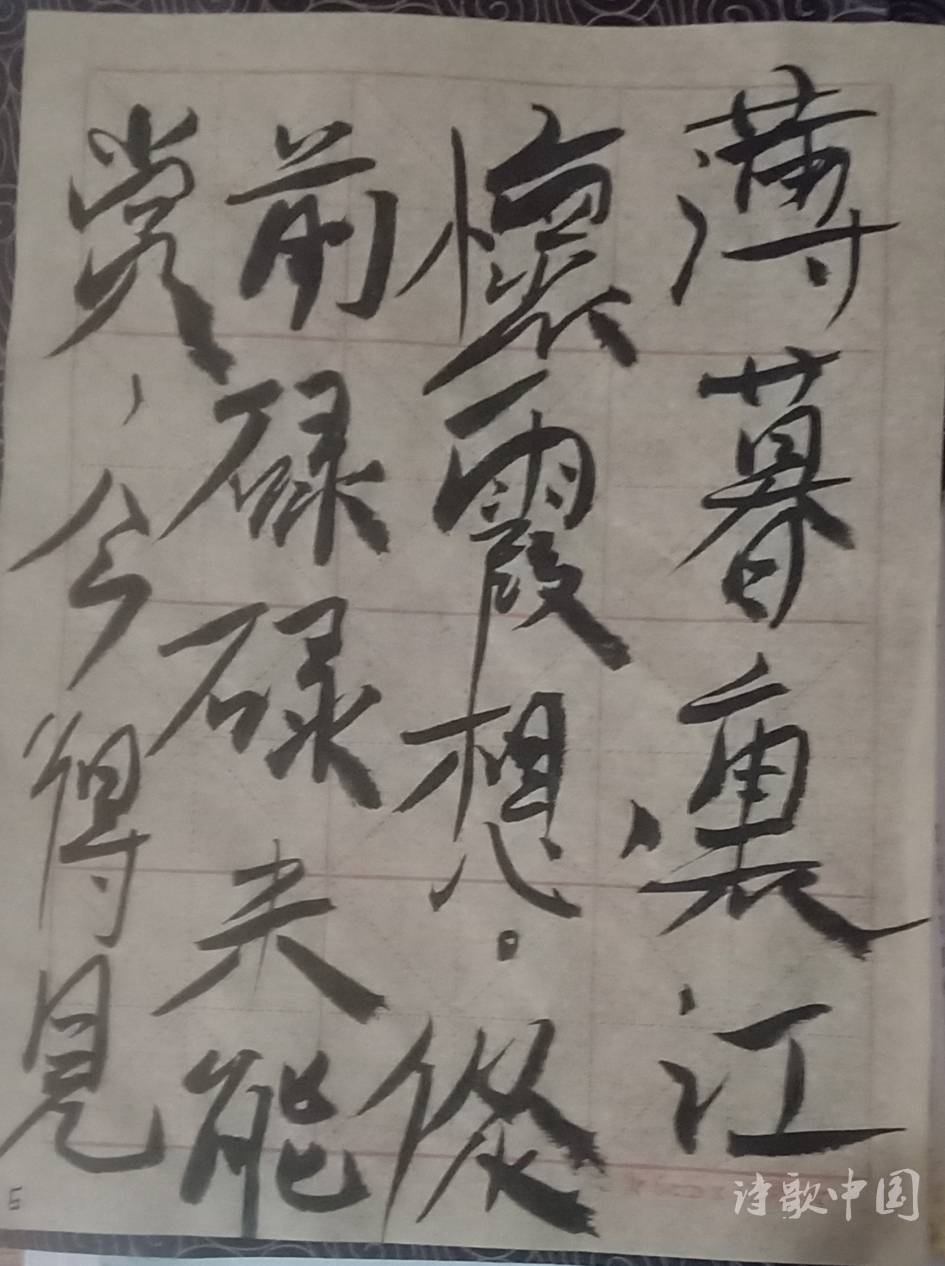 薄暮裏江
懷霞想。從
前碌碌未能
賞，今得見
5
诗歌中国